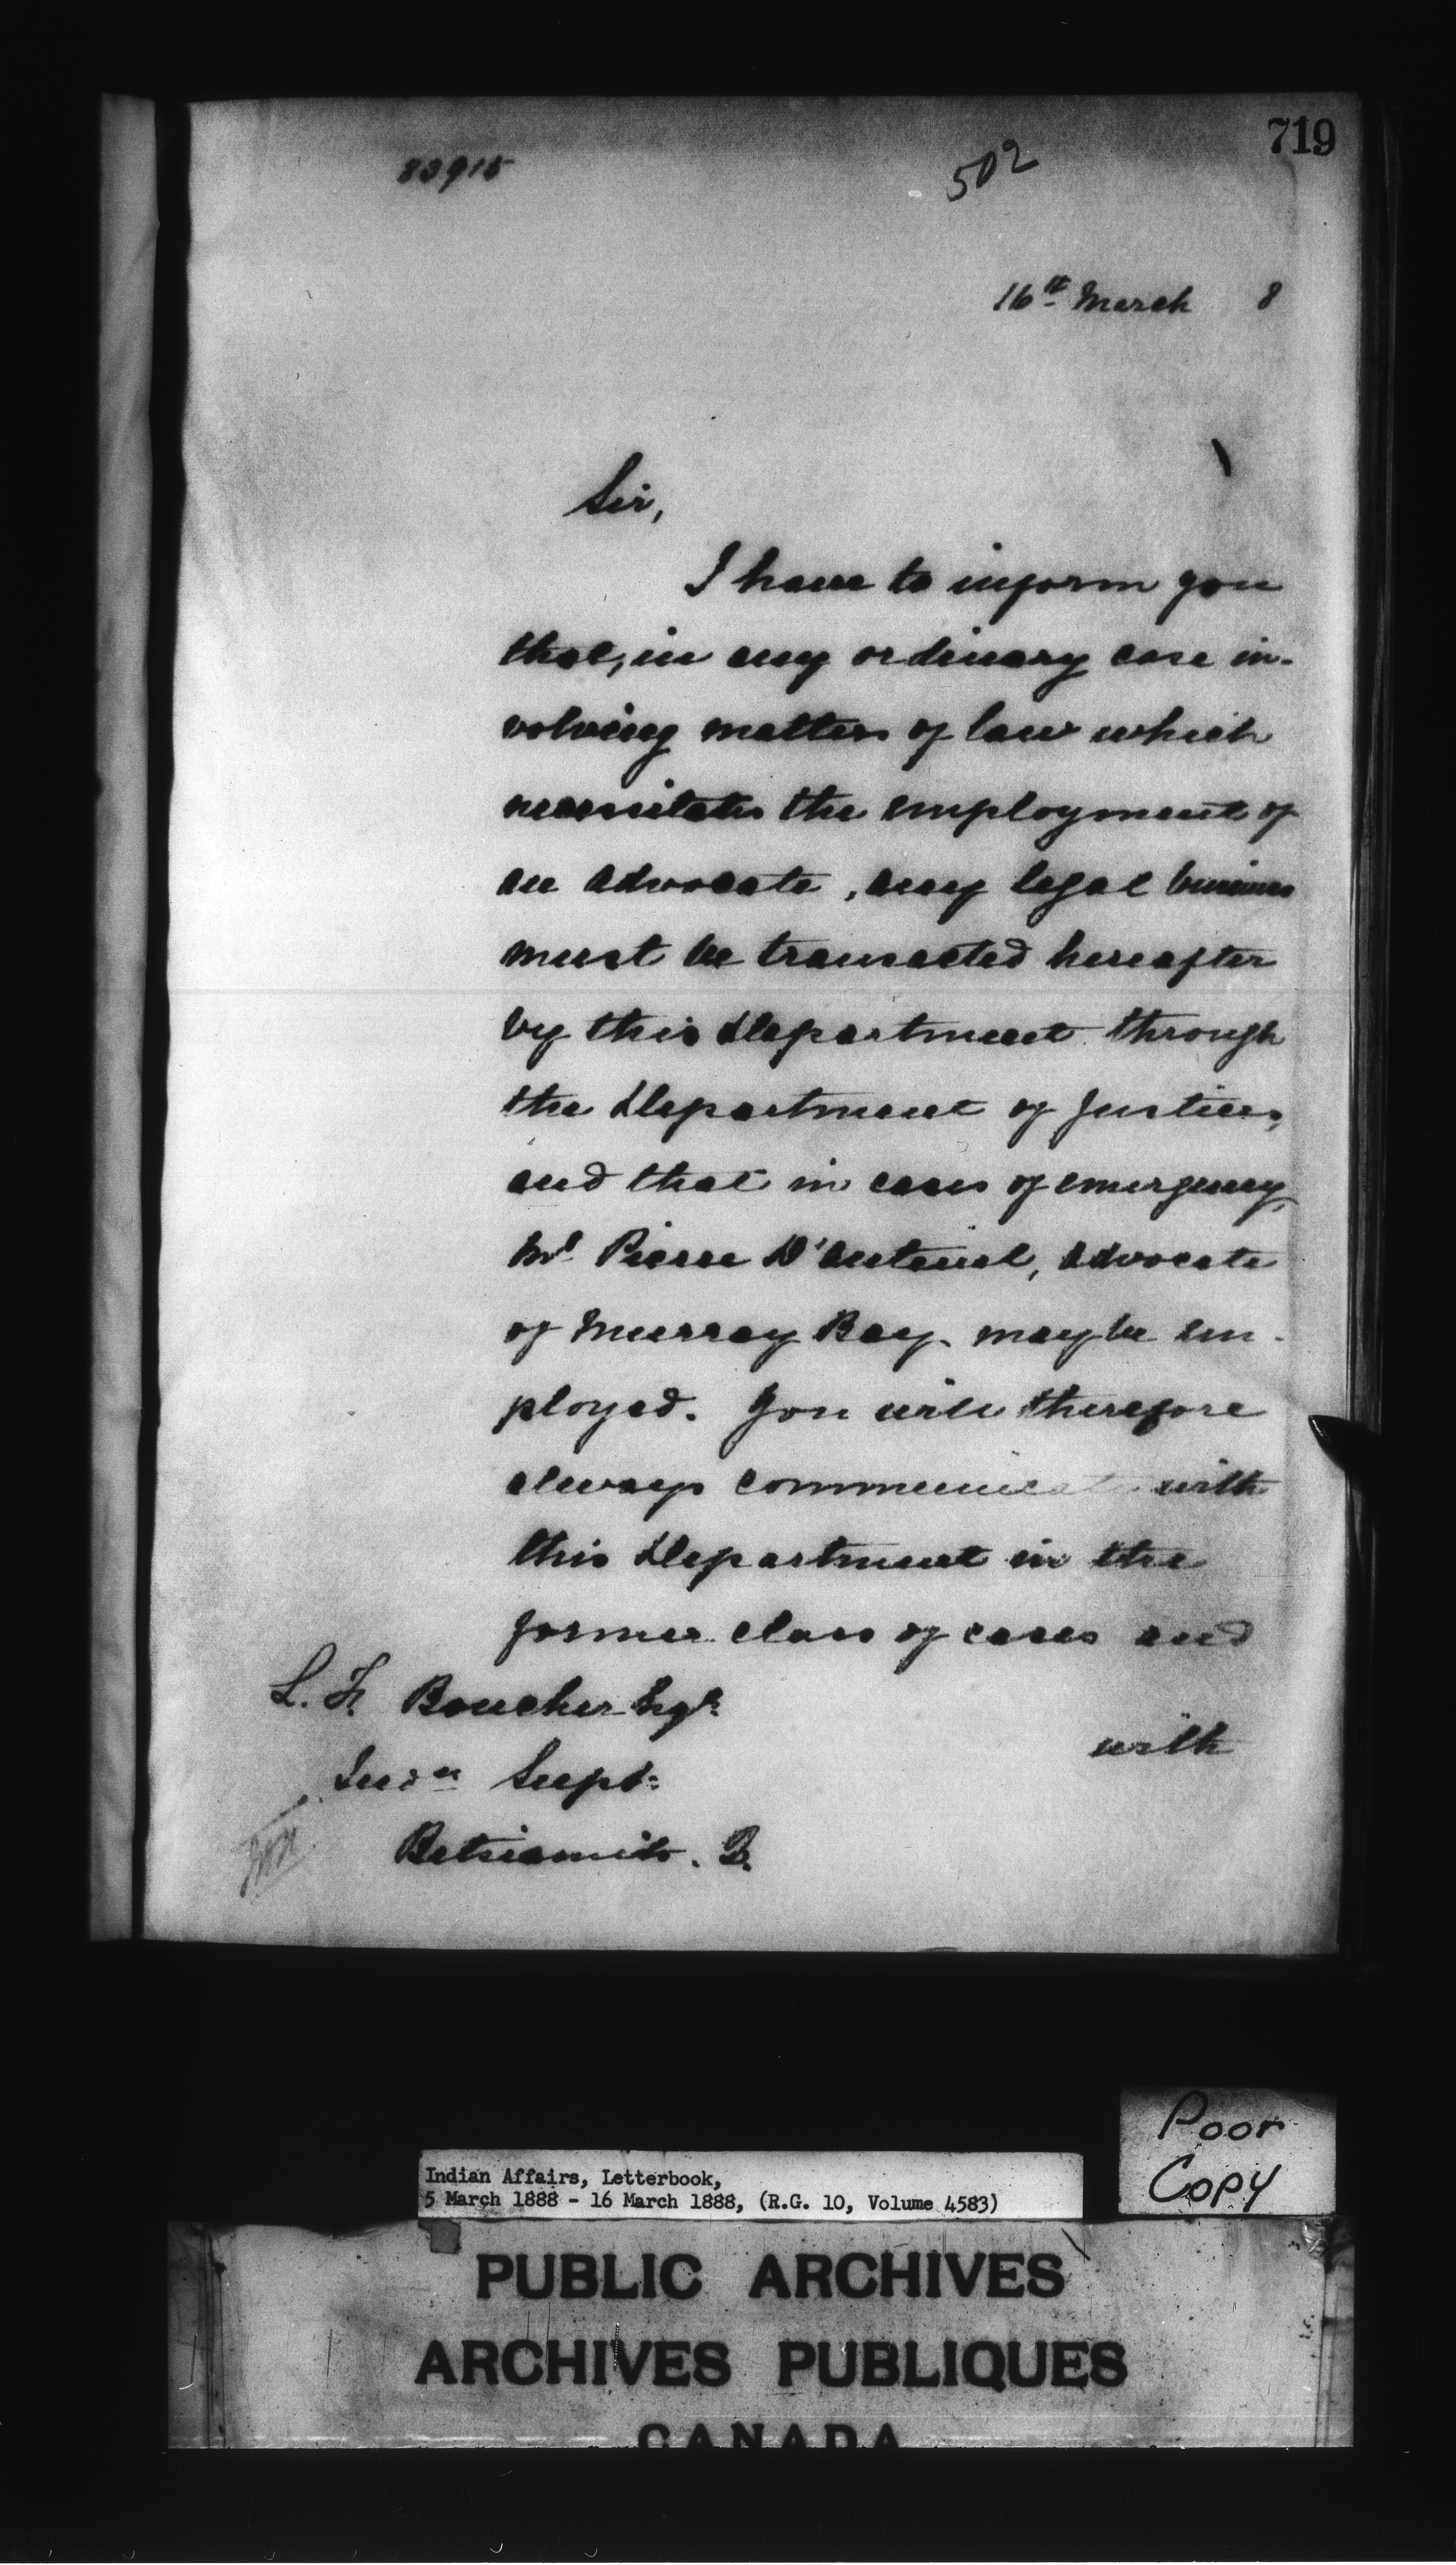 719
83915
502
16th March 8
Sir,
I have to inform you
that, in any ordinary case in-
volving matters of law which
necessitates the employment of
an advocate, any legal business
must be transacted hereafter
by this Department through
the Department of Justice,
and that in cases of emergency,
Mr Pierre D'Auteuil, Advocate
of Murray Bay may be em-
ployed. You will therefore
always communicate with
this Department in the
former class of cases and
with
L. F. Boucher Esqr.
Indn Supt.
Betsiamits. Q.
Poor
Copy
Indian Affairs, Letterbook,
5 March 1888 - 16 March 1888, (R.G. 10, Volume 4583)
PUBLIC ARCHIVES
ARCHIVES PUBLIQUES
CANADA